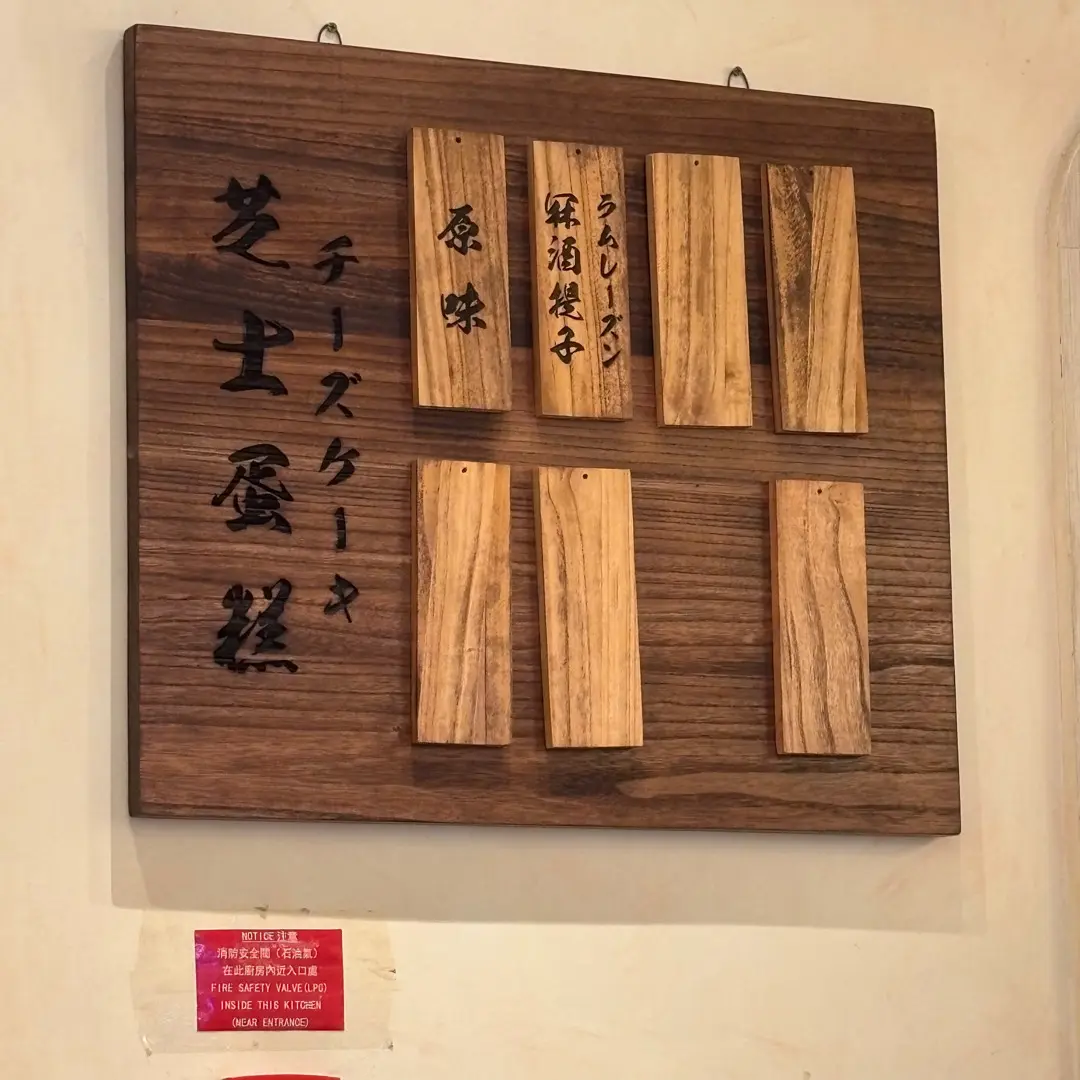 芝士蛋糕
チーズケーキ
原味
冧酒提子
ラムレーズン
NOTICE 注意
消防安全閥（石油氣）
在此廚房內近入口處
FIRE SAFETY VALVE(LPG)
INSIDE THIS KITCHEN
(NEAR ENTRANCE)